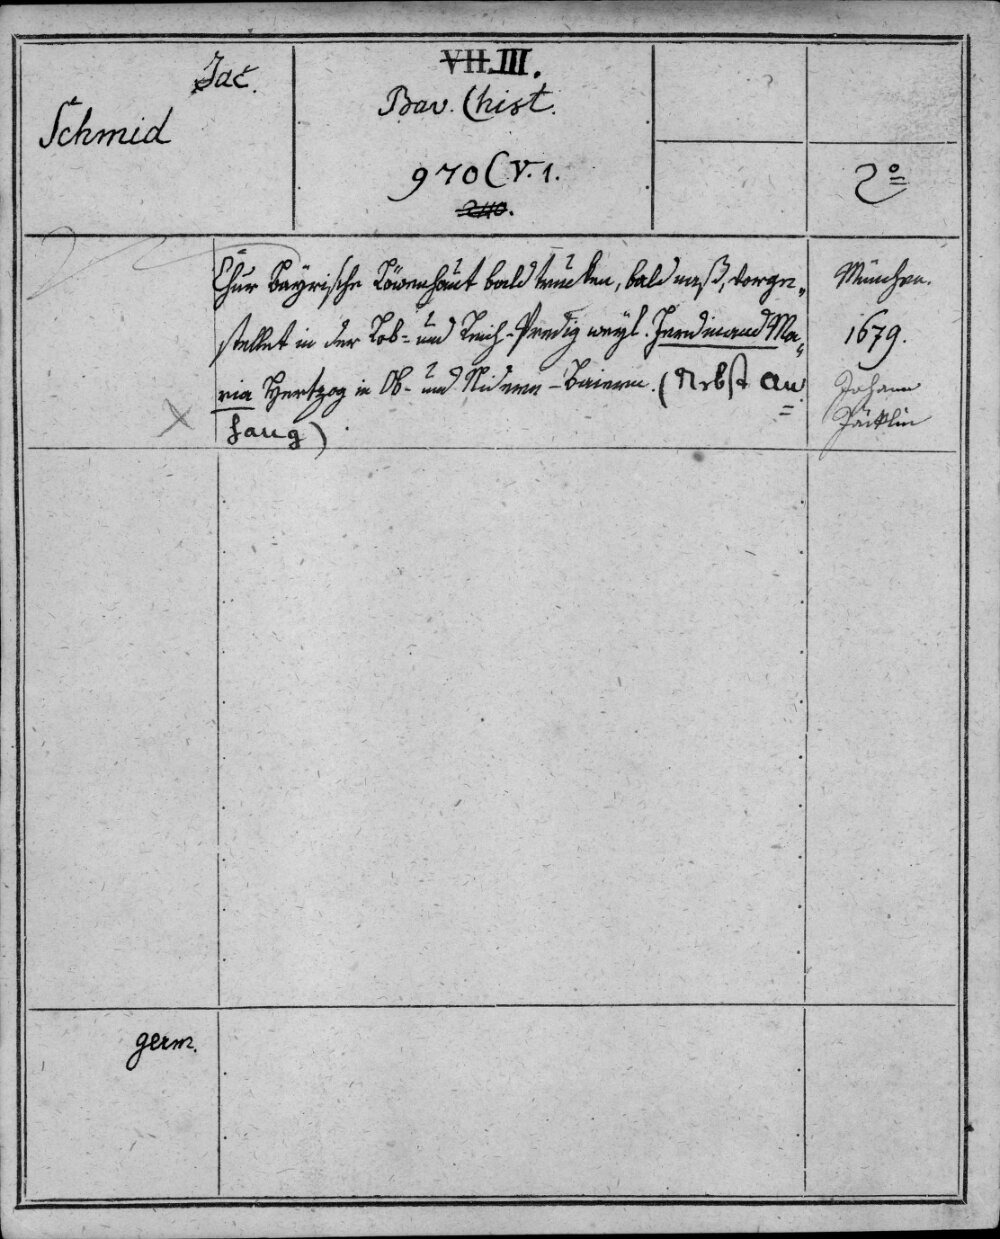 Jac.
Schmid
VII. III.
Bav. Chist.
970 (V. 1.
2º
Chur Bayrische Löwenhaut bald trucken, bald naß, vorge„
stellet in der Lob- und Leich-Predig weyl. Ferdinand Ma„
ria Hertzog in Ob- und Nidern-Baiern. (Nebst An=
hang)
München.
1679.
Johann
Jäcklin
germ.